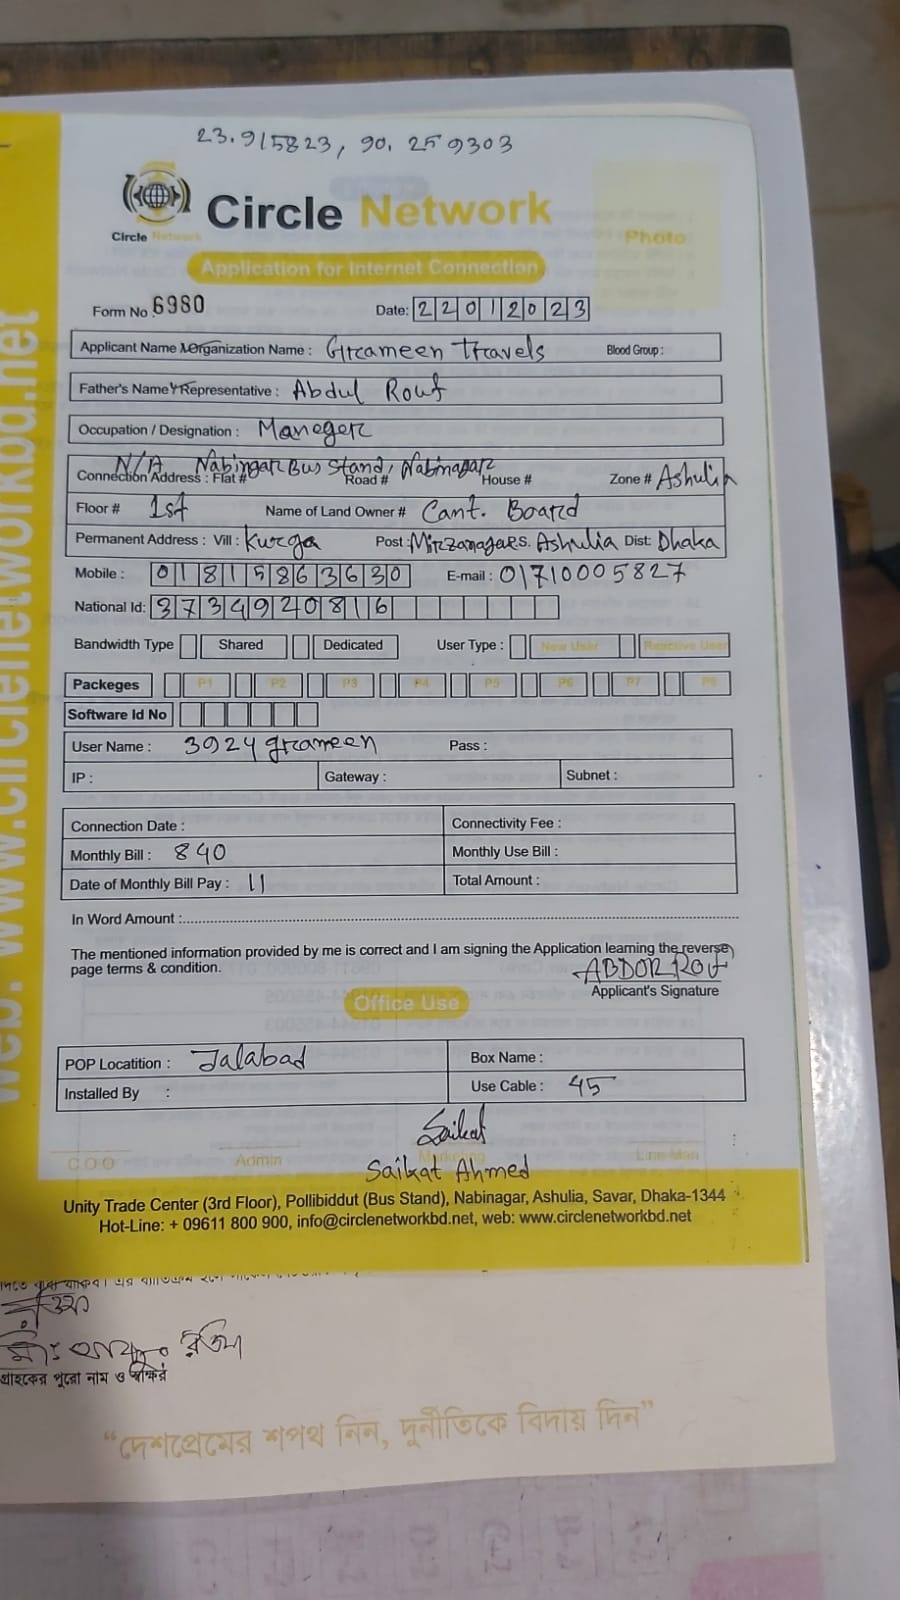 23.915823, 90.259303
Circle Network
Circle Network
Photo
Application for Internet Connection
Form No. 6980 Date: 22012023
Applicant Name / Organization Name : Grameen Travels Blood Group :
Father's Name / Representative : Abdul Rouf
Occupation / Designation : Maneger
N/A Nabingar Bus Stand, Nabinagar
Connection Address : Flat # Road # House # Zone # Ashulia
Floor # 1st Name of Land Owner # Cant. Board
Permanent Address : Vill : Kurga Post : Mirzanagar P.S. Ashulia Dist: Dhaka
Mobile : 01815863630 E-mail : 01710005827
National Id: 3734920816
Bandwidth Type Shared Dedicated User Type : New User Reactive User
Packeges P1 P2 P3 P4 P5 P6 P7 P8
Software Id No
User Name : 3924grameen Pass :
IP : Gateway : Subnet :
Connection Date : Connectivity Fee :
Monthly Bill : 840 Monthly Use Bill :
Date of Monthly Bill Pay : 11 Total Amount :
In Word Amount :
The mentioned information provided by me is correct and I am signing the Application learning the reverse
page terms & condition.
ABDOR ROF
Applicant's Signature
Office Use
POP Locatition : Jalabad Box Name :
Installed By : Use Cable : 45
Saikat
C O O Admin Marketing Line Man
Saikat Ahmed
Unity Trade Center (3rd Floor), Pollibiddut (Bus Stand), Nabinagar, Ashulia, Savar, Dhaka-1344
Hot-Line: + 09611 800 900, info@circlenetworkbd.net, web: www.circlenetworkbd.net
web: www.circlenetworkbd.net
গ্রাহকের পুরো নাম ও স্বাক্ষর
“দেশপ্রেমের শপথ নিন, দুর্নীতিকে বিদায় দিন”